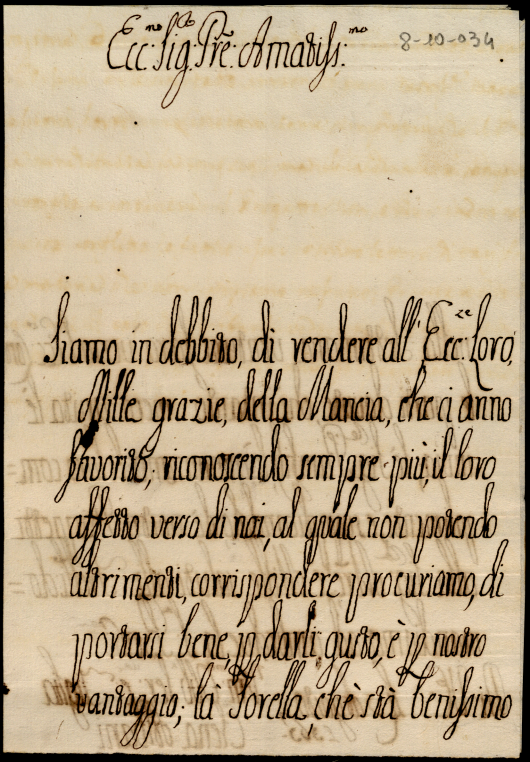 8-10-034
Ecc:mo Sig:r Prē: Amatiss:mo
Siamo in debbito, di rendere all' Ecc:ze Loro,
Mille grazie, della Mancia, che ci anno
favorito; riconoscendo sempre più, il loro
affetto verso di noi, al quale non potendo
altrimenti, corrispondere procuriamo, di
portarsi bene, p darli gusto, è p nostro
vantaggio; la Sorella, chè stà benissimo